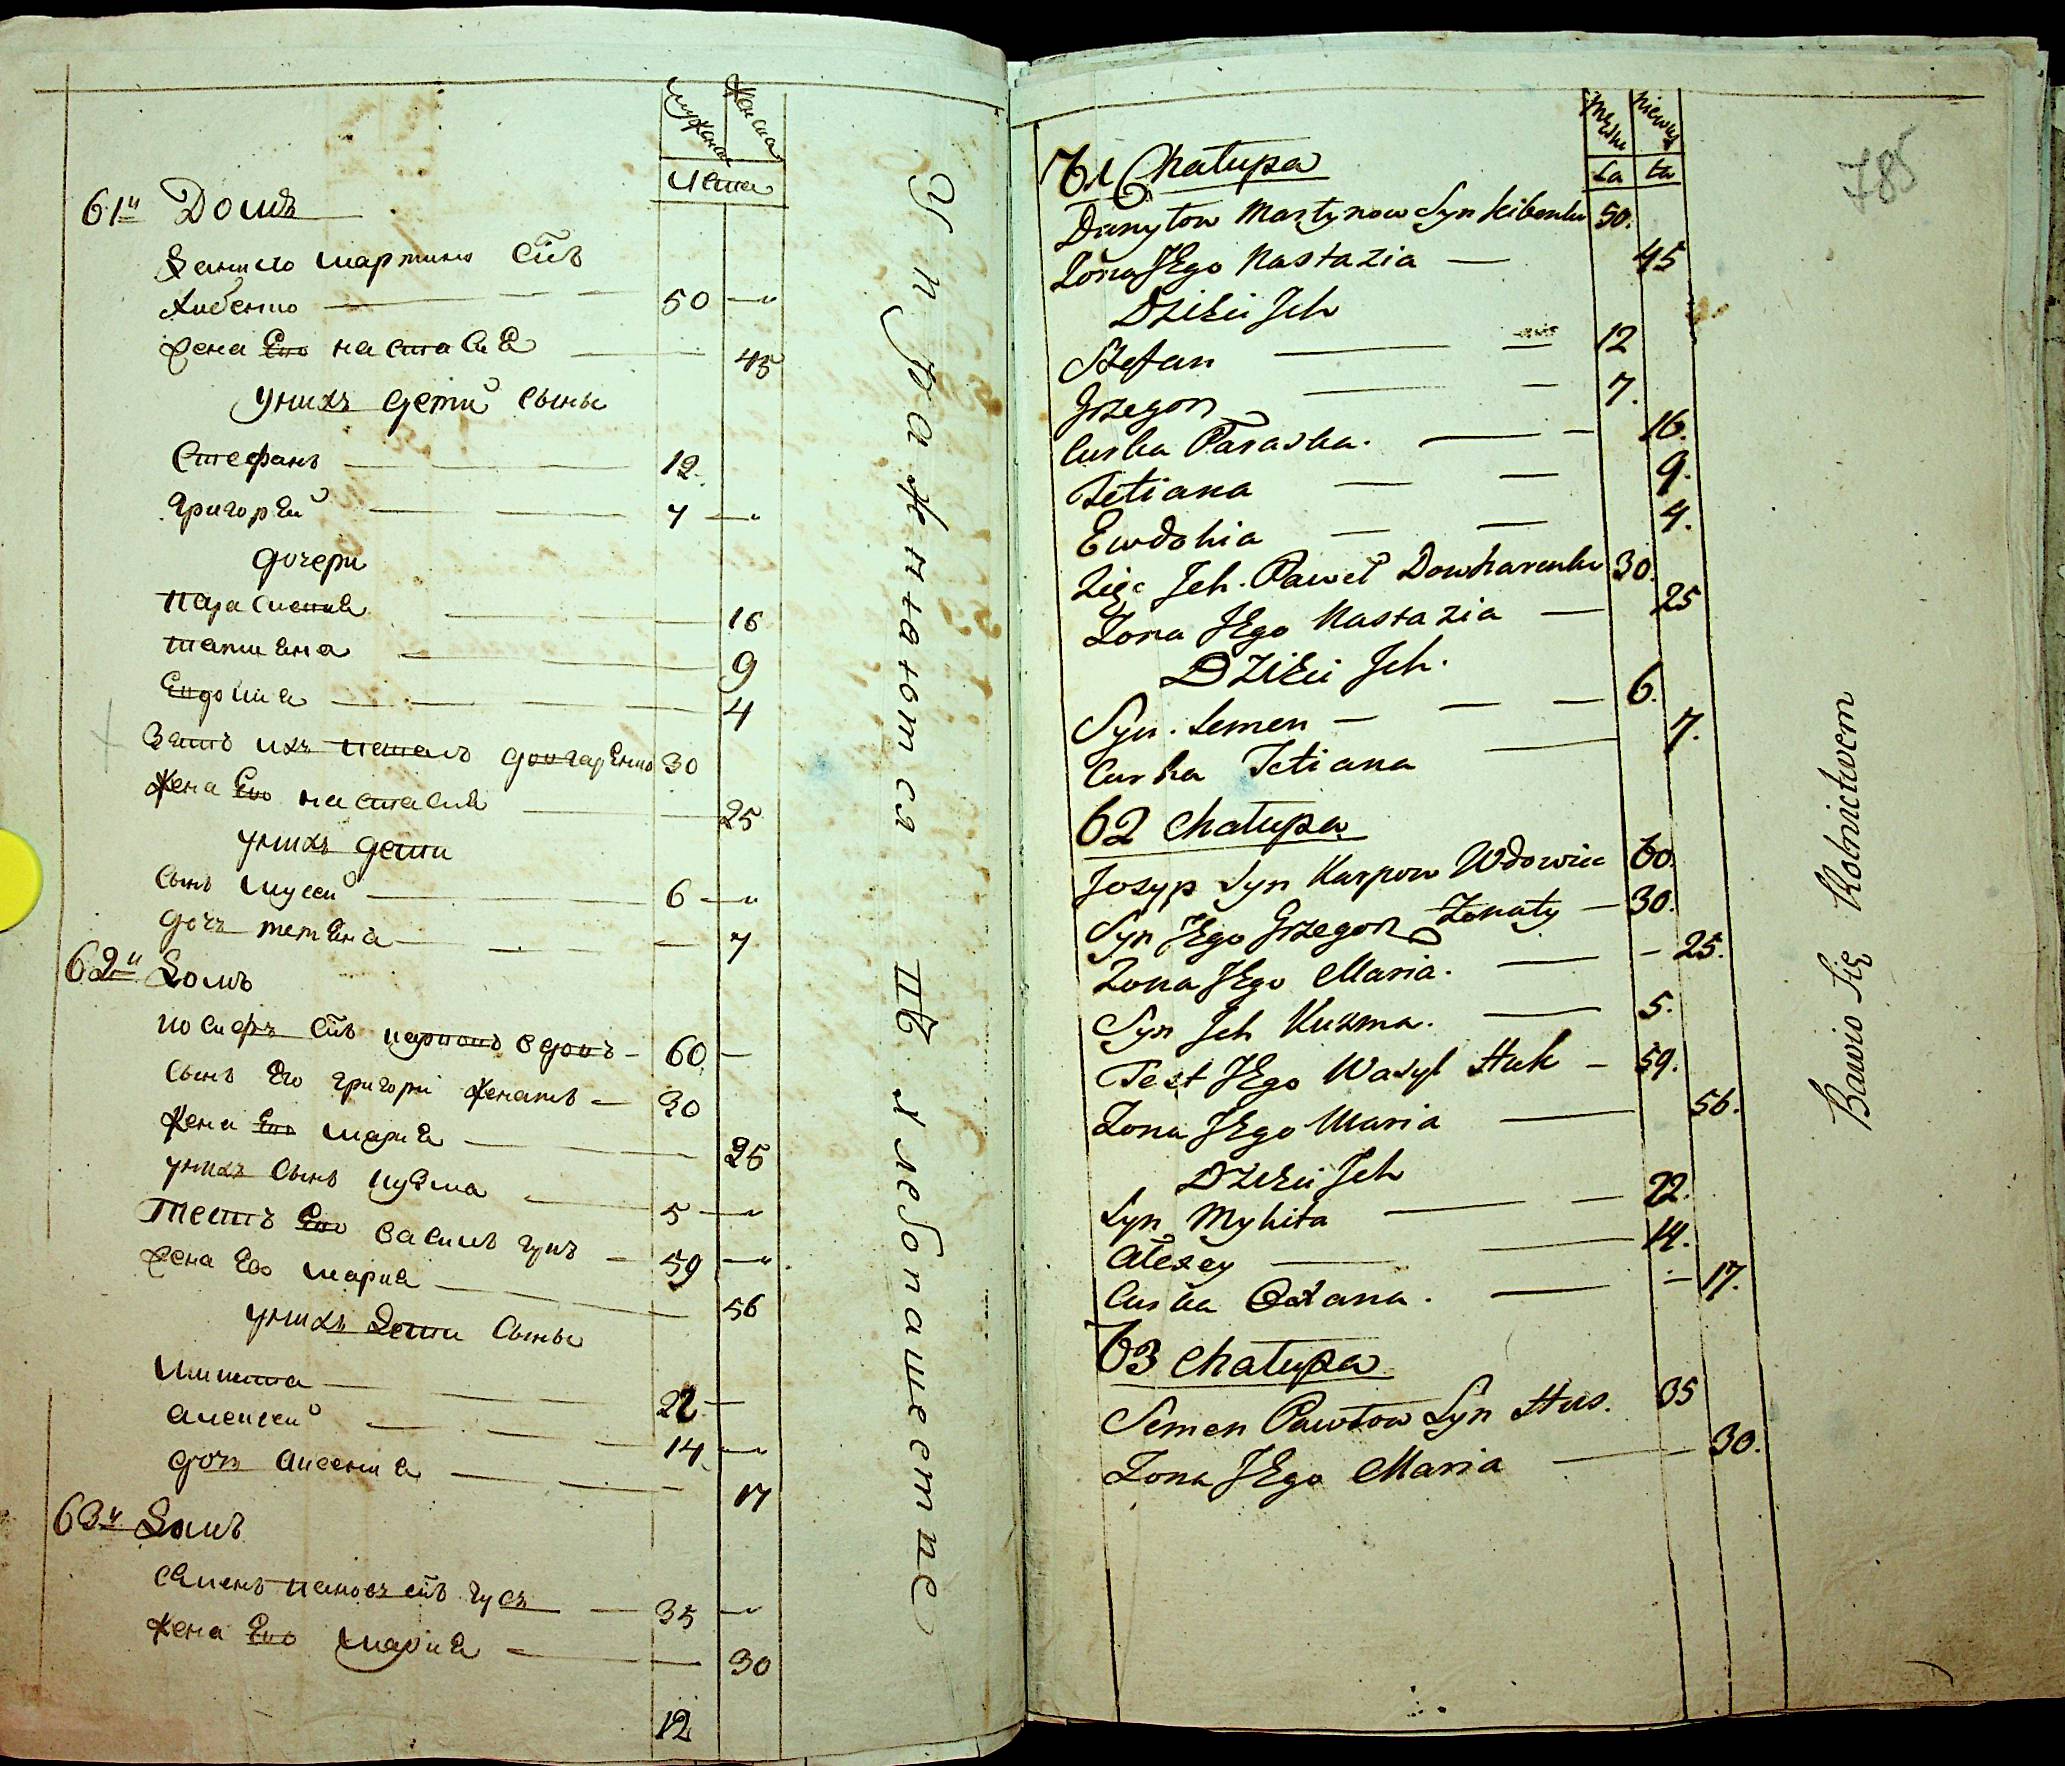 мужска
женска
лета
61й Домъ
Данило мартинъ снъ
Хибенко 50
жена Его настасиЯ 45
унихъ детй сыны
Стефанъ 12
григорЕй 7
дочери
Параскевия 16
татиЯна 9
Евдокия 4
Зять ихъ павелъ довгарЕнко 30
жена Его настасия 25
унихъ дети
сынъ 6
дочъ тетЯна 7
62й Домъ
иосифъ снъ карповъ вдовъ 60
Сынъ Его григорй женатъ 30
жена Его мариЯ 25
унихъ сынъ кузма 5
Тесть Его василь гукъ 59
жена Его мария 56
унихъ Дети сыны
микита 22
алексей 14
дочъ аксениЯ 17
63й Домъ
сЕменъ павловъ снъ гусъ 35
жена Его мариЯ 30
12
Упражнаются въ хлебопашестве
785
męzka
niewia
La ta
61 Chałupa
Danyłow Martynow Syn Kibenku 50.
Zona JEgo Nastazia 45
DziEci Jch
Stefan 12
Grzegorz 7.
Curka Paraska. 16.
Tetiana 9.
Ewdokia 4.
Zięc Jch. Paweł Dowharenku 30.
Zona JEgo Nastazia 25
DziEci Jch.
Syn. Semen 6.
Curka Tetiana 7.
62 Chałupa
Jozyp Syn Karpow Wdowiec 60.
Syn JEgo Grzegorz Zonaty 30.
Zona JEgo Maria. 25.
Syn Jch Kuzma. 5.
Test JEgo Wasyl Huk 59.
Zona JEgo Maria 56.
DziEci Jch
Syn Mykita 22.
Alexey 14.
Curka Oxana. 17.
63 Chałupa
Semen Pawłow Syn Hus. 35
Zona JEgo Maria 30.
Bawio Się Rolnictwem